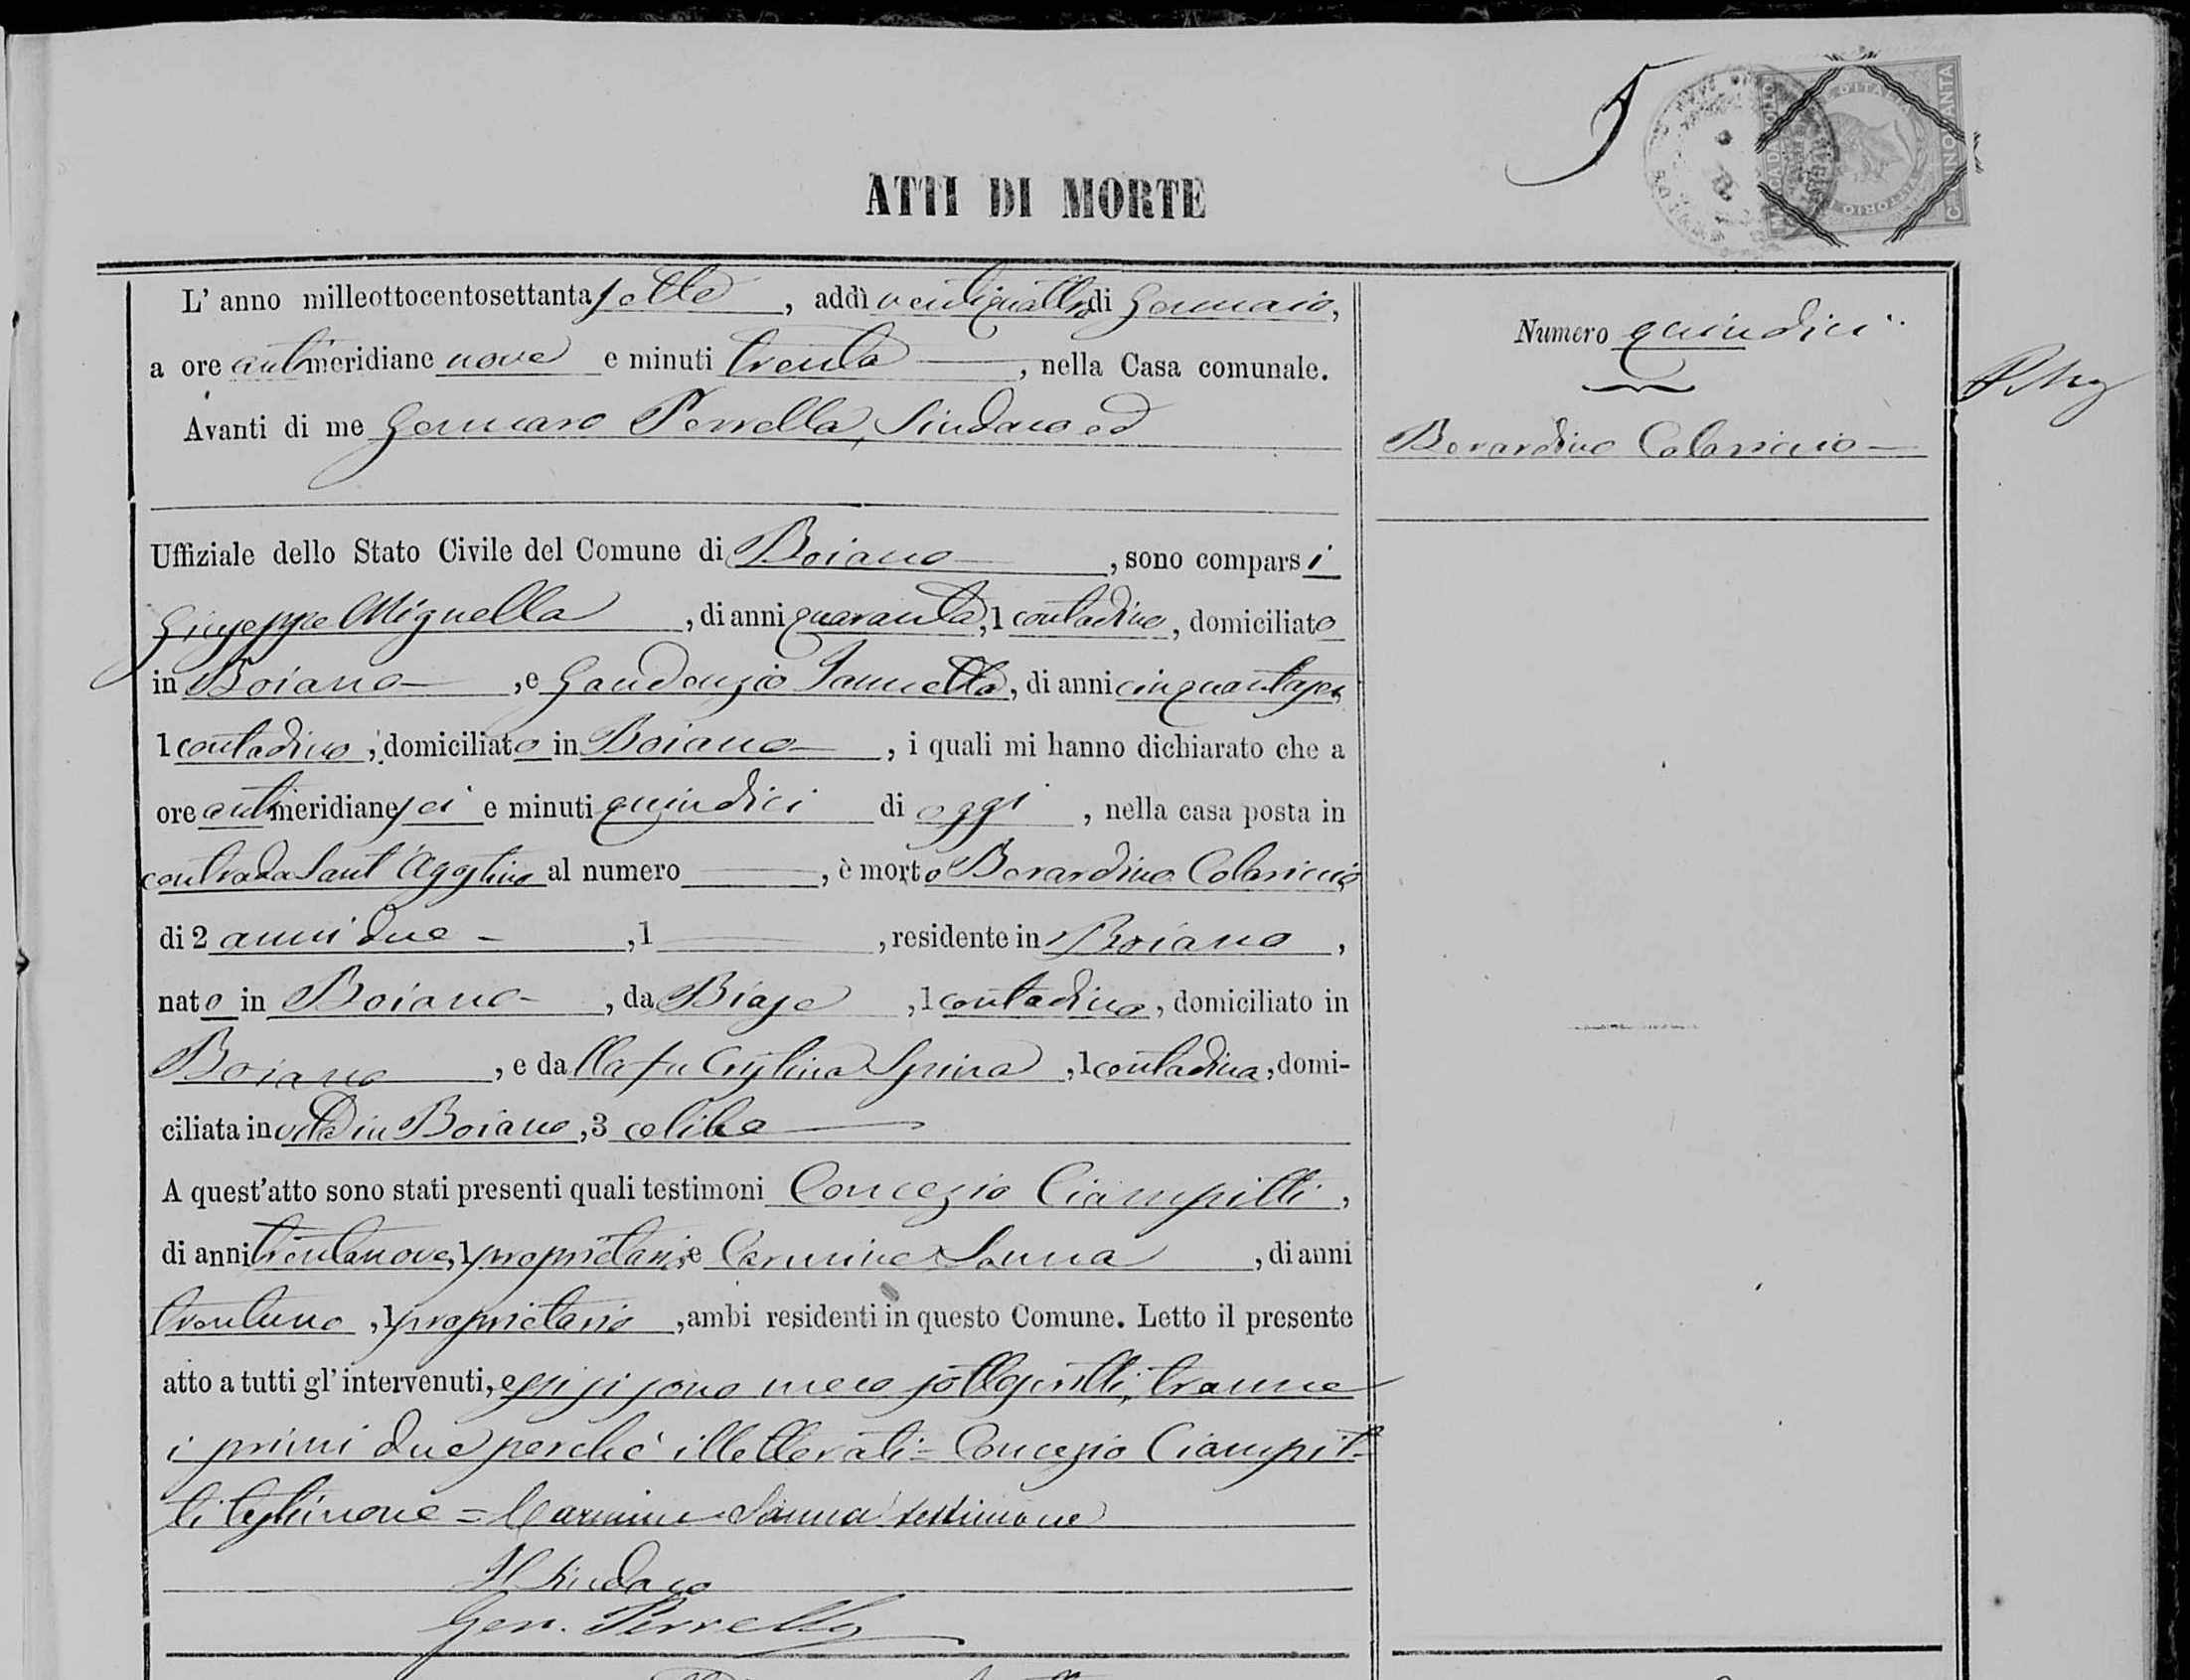 5
CINQUANTA
ATTI DI MORTE
L' anno milleottocentosettantasette, addì ventiquattro di Gennaio,
a ore antimeridiane nove e minuti trenta, nella Casa comunale.
Avanti di me Gennaro Perrella, Sindaco ed
Uffiziale dello Stato Civile del Comune di Boiano, sono comparsi
Giuseppe Mignella, di anni quaranta, 1 contadino, domiciliato
in Boiano, e Gaudenzio Iannetta, di anni cinquantasei,
1 contadino, domiciliato in Boiano, i quali mi hanno dichiarato che a
ore antimeridiane sei e minuti quindici di oggi, nella casa posta in
contrada Sant'Agostino al numero —, è morto Berardino Colaricio
di 2 anni due -, 1 —, residente in Boiano,
nato in Boiano, da Biase, 1 contadino, domiciliato in
Boiano, e dalla fu Cristina Spina, 1 contadina, domi-
ciliata in vita in Boiano, 3 celibe
A quest'atto sono stati presenti quali testimoni Concezio Ciampitti,
di anni trentanove, 1 proprietario, e Carmine Sanna, di anni
trentuno, 1 proprietario, ambi residenti in questo Comune. Letto il presente
atto a tutti gl'intervenuti, essi si sono meco sottoscritti, tranne
i primi due perché illetterati = Concezio Ciampit-
ti testimone = Carmine Sanna testimone
Il Sindaco
Gen. Perrella
Numero quindici
Berardino Colaricio